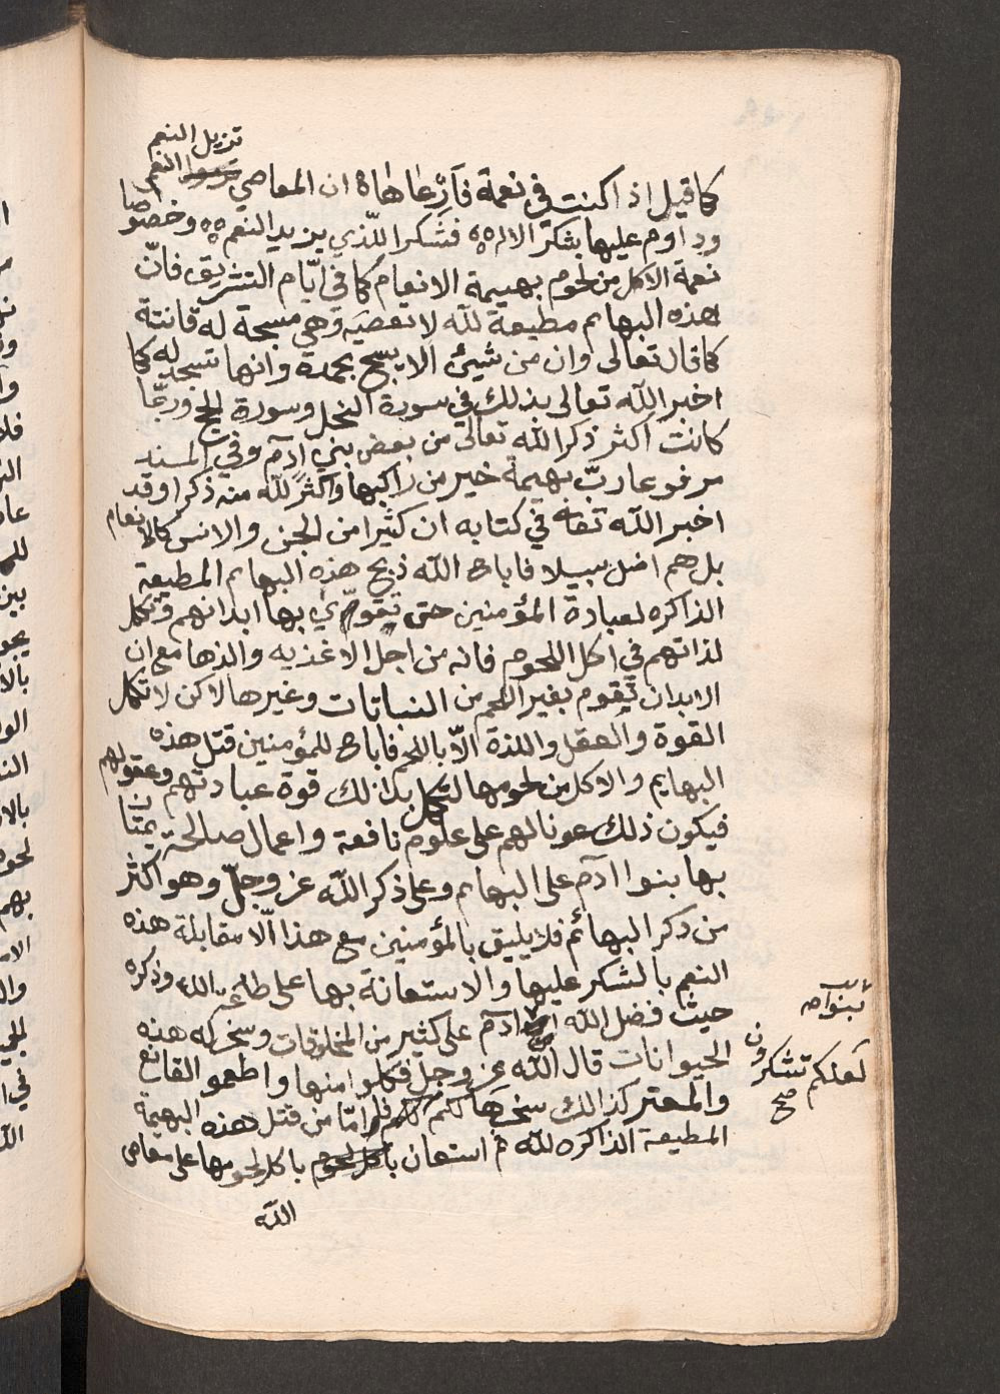 تزيل النعم
كما قيل اذا كنت في نعمة فارعاها ان المعاصي
وداوم عليها بشكر الاله فشكر الذي يزيد النعم وخصوصا
نعمة الاكل من لحوم بهيمة الانعام كما في ايّام التشريق فانّ
هذه البهائم مطيعة لله لا تعصيه وهي مسبحة له قانتة
كما قال تعالى وان من شيئ الا يسبح بحمده وانها تسجد له كما
اخبر الله تعالى بذلك في سورة النحل وسورة الحج وربّما
كانت اكثر ذكرا لله تعالى من بعض بني ادم وفي المسند
مرفوعا ربّ بهيمة خير من راكبها واكثر لله منه ذكرا وقد
اخبر الله تعالى في كتابه ان كثيرا من الجن والانس كالانعام
بل هم اضل سبيلا فاباح الله ذبح هذه البهائم المطيعة
الذاكره لعبادة المؤمنين حتى تقوى بها ابدانهم وتكمل
لذاتهم في اكل اللحوم فانه من اجل الاغذيه والذها مع ان
الابدان تقوم بغير اللحم من النباتات وغيرها لاكن لا تكمل
القوة والعقل واللذة الّا باللحم فاباح للمؤمنين قتل هذه
البهايم والاكل من لحومها لتكمل بذالك قوة عبادتهم وعقولهم
فيكون ذلك عونا لهم على علوم نافعة واعمال صالحة يمتاز
بها بنوا ادم على البهائم وعلى ذكر الله عز وجلّ وهو اكثر
من ذكر البهائم فلا يليق بالمؤمنين مع هذا الّا مقابلة هذه
النعم بالشكر عليها والاستعانة بها على طاعة الله وذكره
حيث فضل الله ادم على كثير من المخلوقات وسخر له هذه
بنوا ادم
الحيوانات قال الله عز وجل فكلوا منها واطعموا القانع
والمعتر كذالك سخرها لكم فامّا من قتل هذه البهيمة
لعلكم تشكرون صح
المطيعة الذاكره لله ثم استعان باكل لحومها على معاصى
الله